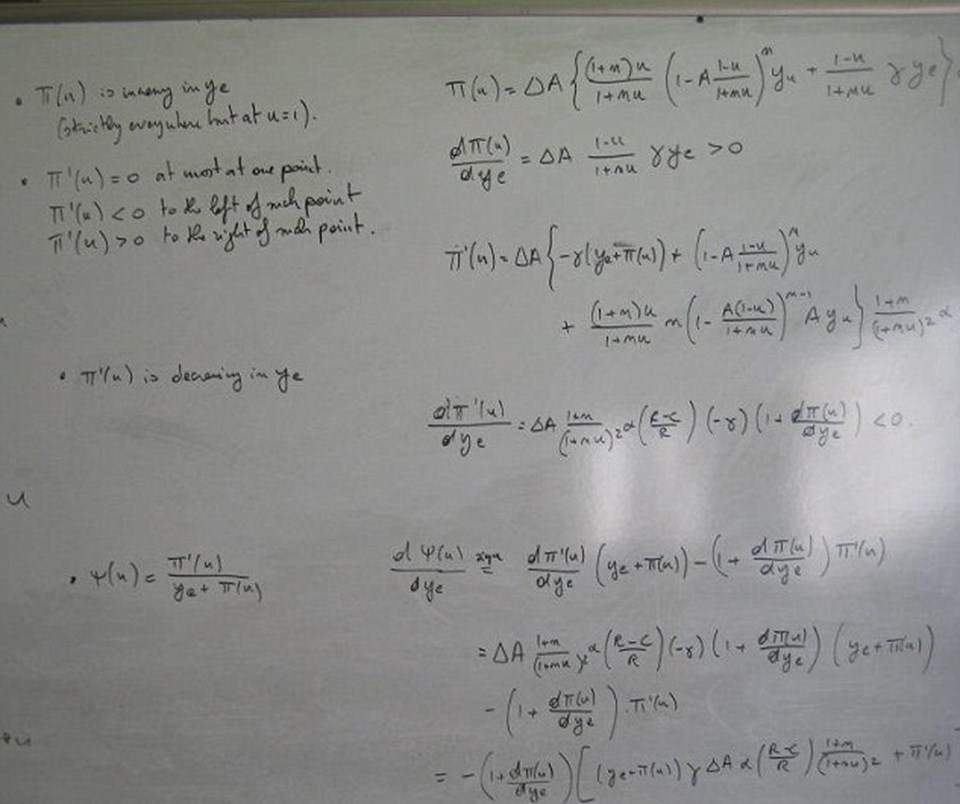 • Π(u) is increasing in ye
(strictly everywhere but at u=1).
• Π'(u) = 0 at most at one point.
Π'(u) < 0 to the left of such point
Π'(u) > 0 to the right of such point.
• Π'(u) is decreasing in ye
u
• Ψ(u) = Π'(u) / (ye + Π(u))
Π(u) = ΔA { (1+n)u / (1+nu) (1 - A (1-u)/(1+nu))^n yu + (1-u)/(1+nu) γ ye }
dΠ(u)/dye = ΔA (1-u)/(1+nu) γ ye > 0
Π'(u) = ΔA { -γ(ye + Π(u)) + (1 - A (1-u)/(1+nu))^n yu
+ (1+n)u / (1+nu) n (1 - A(1-u)/(1+nu))^(n-1) A yu } (1+n)/(1+nu)^2 α
dΠ'(u)/dye = ΔA (1+n)/(1+nu)^2 α ((R-C)/R) (-γ) (1 + dΠ(u)/dye) < 0.
dΨ(u)/dye sign= dΠ'(u)/dye (ye + Π(u)) - (1 + dΠ(u)/dye) Π'(u)
= ΔA (1+n)/(1+nu)^2 α ((R-C)/R) (-γ) (1 + dΠ(u)/dye) (ye + Π(u))
- (1 + dΠ(u)/dye) . Π'(u)
= - (1 + dΠ(u)/dye) [ (ye + Π(u)) γ ΔA α ((R-C)/R) (1+n)/(1+nu)^2 + Π'(u)